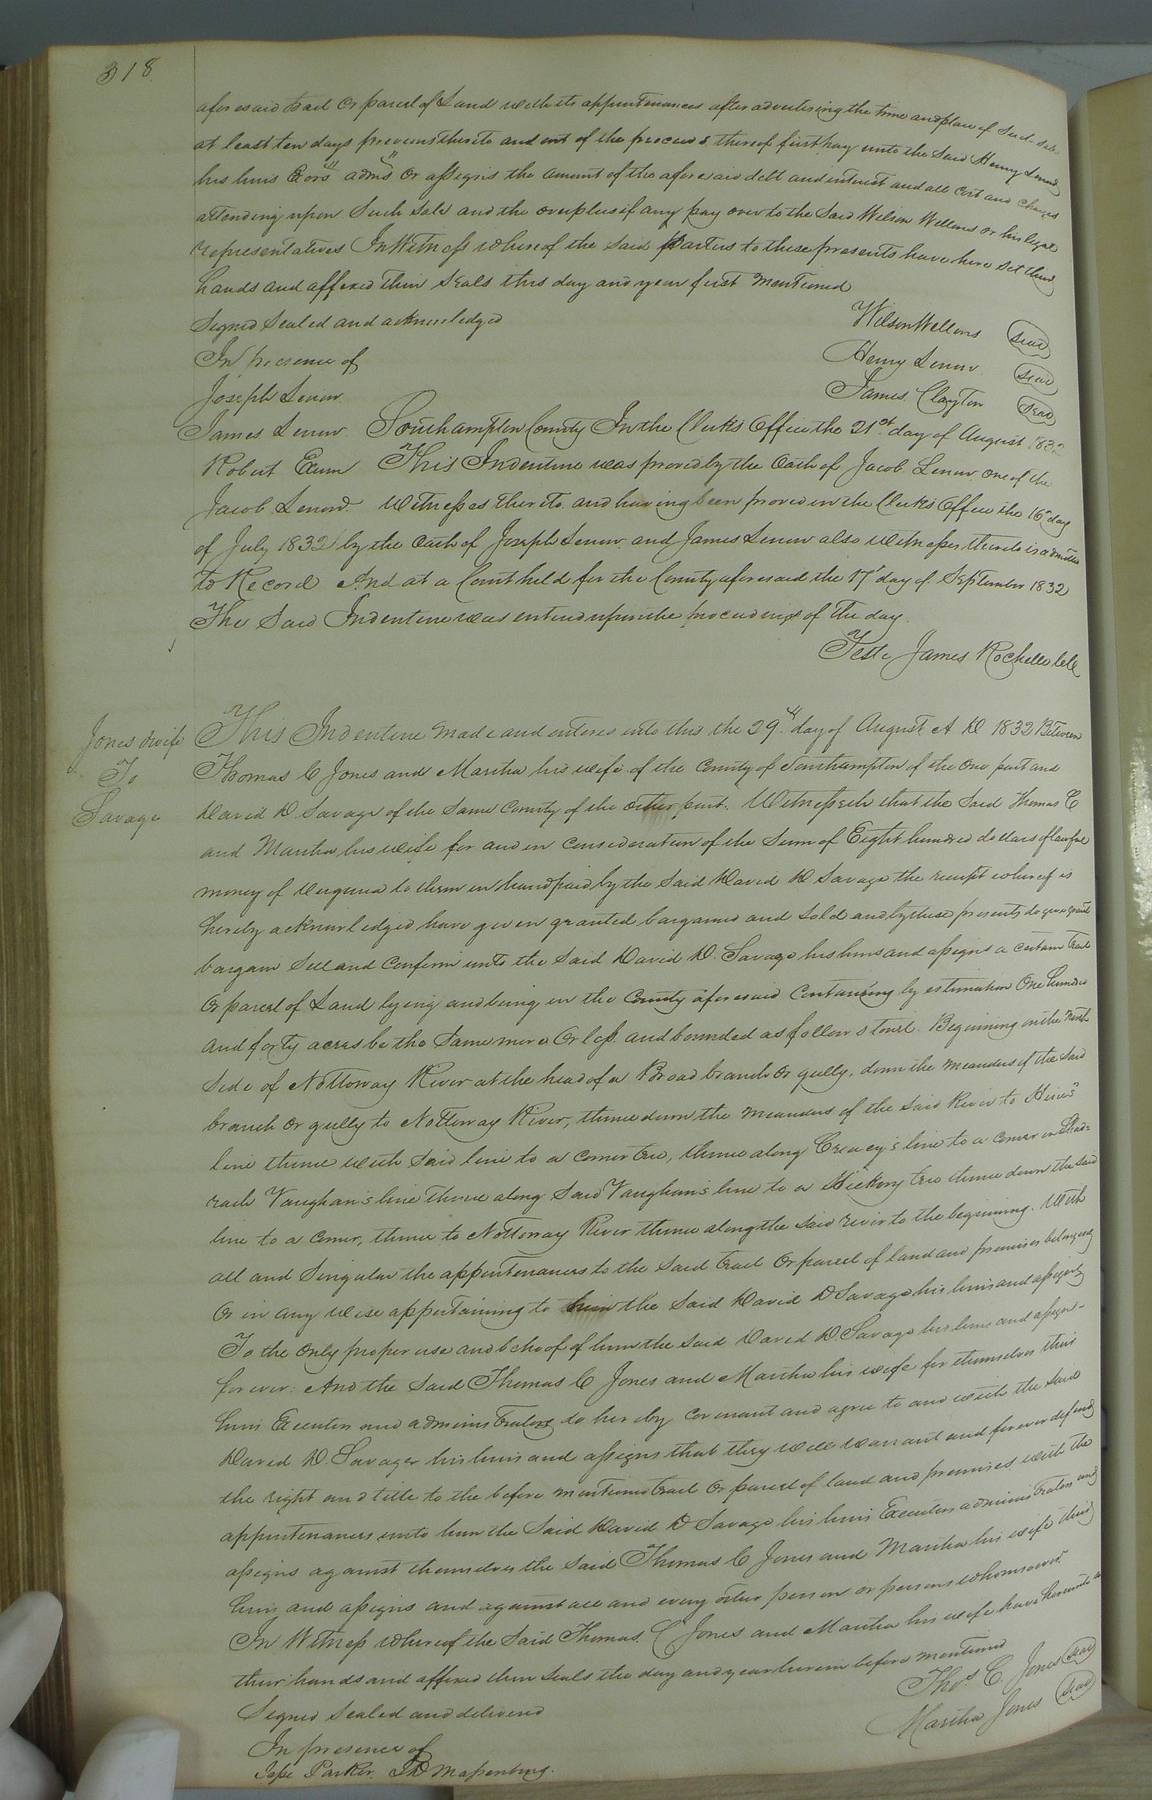 318
aforesaid tract or parcel of Land with its appurtenances after advertising the time and place of such sale
at least ten days previous thereto and out of the proceeds thereof first pay unto the said Henry Lenow
his heirs Exors adms or assigns the amount of the aforesaid debt and interest and all Cost and charges
attending upon Such Sale and the overplus if any pay over to the Said Wilson Wellons or his legal
representatives In Witness whereof the said parties to these presents have here set their
hands and affixed their seals this day and year first mentioned
Signed Sealed and acknowledged
Wilson Wellons Seal
In presence of
Henry Lenow Seal
Joseph Lenow
James Clayton Seal
James Lenow Southampton County In the Clerks Office the 21st day of August 1832
Robert Exum This Indenture was proved by the Oath of Jacob Lenow one of the
Jacob Lenow Witnesses thereto and having been proved in the Clerks Office the 16th day
of July 1832 by the Oath of Joseph Lenow and James Lenow also witnesses thereto is admitted
to Record And at a Court held for the County aforesaid the 17th day of September 1832
The Said Indenture was entered upon the proceedings of the day
Teste James Rochelle
Jones & wife
To
Savage
This Indenture made and entered into this the 29th day of August A D 1832 Between
Thomas C Jones and Martha his wife of the County of Southampton of the one part and
David D Savage of the Same County of the other part. Witnesseth that the Said Thomas C
and Martha his wife for and in consideration of the Sum of Eight hundred dollars of lawful
money of Virginia to them in hand paid by the Said David D Savage the receipt whereof is
hereby acknowledged have given granted bargained and sold and by these presents do give grant
bargain Sell and Confirm unto the Said David D. Savage his heirs and assigns a certain tract
or parcel of Land lying and being in the County aforesaid Containing by estimation One hundred
and forty acres be the Same more or less and bounded as follows to wit. Beginning on the North
Side of Nottoway River at the head of a Broad branch or gully, down the meanders of the said
branch or gully to Nottoway River, thence down the meanders of the said River to
line thence with Said line to a corner tree, thence along Creacy's line to a corner in Shad=
rach Vaughan's line thence along Said Vaughan's line to a Hickory tree thence down the said
line to a corner, thence to Nottoway River thence along the said river to the beginning. With
all and Singular the appurtenances to the Said tract or parcel of land and premises belonging
or in any wise appertaining to him the Said David D Savage his heirs and assigns
To the Only proper use and behoof of him the said David D Savage his heirs and assigns
forever. And the Said Thomas C Jones and Martha his wife for themselves their
heirs Executors and administrators do hereby covenant and agree to and with the said
David D. Savage his heirs and assigns that they will warrant and forever defend
the right and title to the before mentioned tract or parcel of land and premises with the
appurtenances unto him the Said David D Savage his heirs Executors administrators and
assigns against themselves the said Thomas C Jones and Martha his wife their
heirs and assigns and against all and every other person or persons whomsoever
In Witness whereof the Said Thomas C Jones and Martha his wife have hereunto
their hands and affixed their seals the day and year herein before mentioned
Signed Sealed and delivered
Thos C. Jones Seal
In presence of
Martha Jones Seal
Jesse Parker.